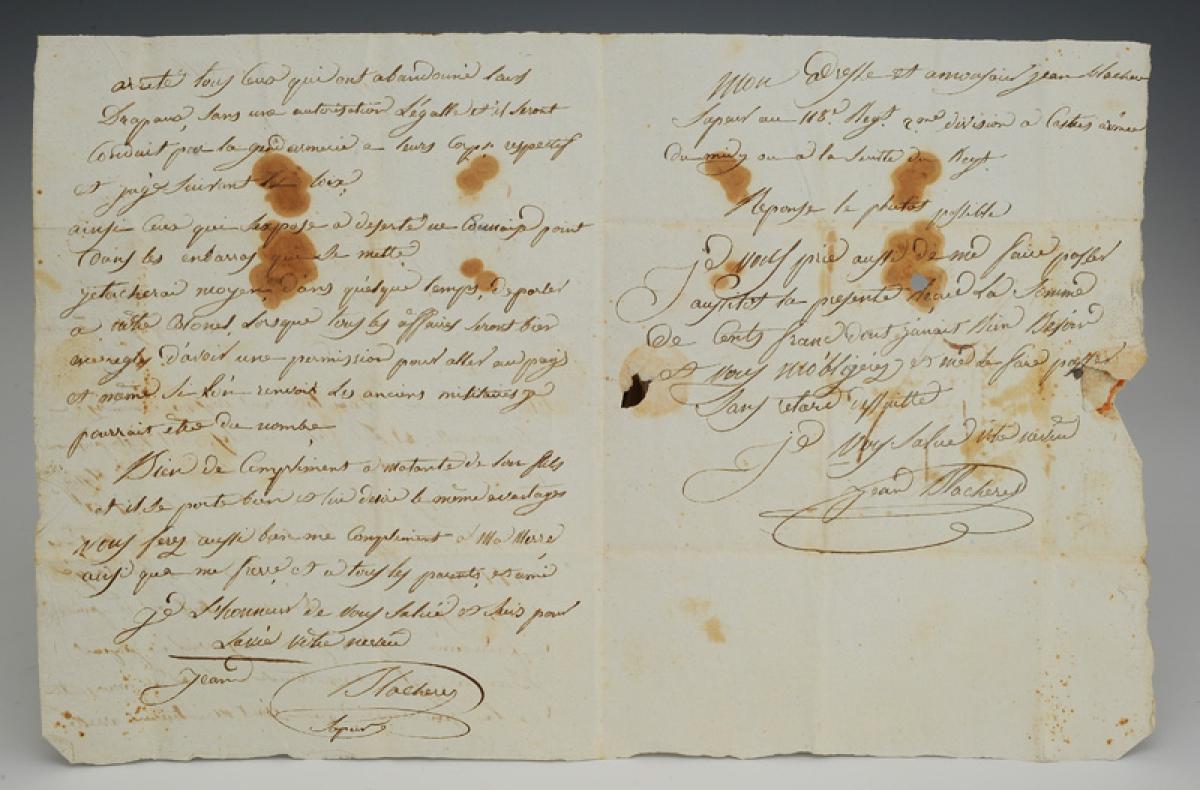 arrêté tous ceux qui ont abandonné leurs
Drapaux, sans une autorisation Légalle et il seront
Conduit par la gendarmerie a leurs Corps respectif
et jugé suivant les loix,
ainsi ceux qui s'expose a déserté ne Connaisse point
Dans les enbarras que se mette
je tacherai moyen, dans quelque temps, de parler
à votre Colonel, Lorsque tous les affaires seront bien
en regle, d'avoir une permission pour aller au pays
et même si l'on renvoi Les anciens militaires je
pourrait être du nombre
Bien de Compliment a matante de son fils
et il se porte bien et lui désire le même avantages
Vous ferez aussi bien me Compliment a Ma Merre
ainsi que me frere et a tous les parents et ami
je L'honneur de vous Salué et Suis pour
Lavie votre neveu
jean Blacheres
Sapeur
Mon Adresse et a monsieur jean Blachere
Sapeur au 118e Regt 2me division a Castres armée
du midy ou a la Suitte du Regt
Reponse le plutos possible
je vous prie aussi de me faire passer
aussitot la presente Reçue La Somme
De Cents franc dont j'anait Bien Besoin
et vous m'obligerez et me la faire passer
Sans retard ensuitte
je vous Salue votre neveu
jean Blacheres